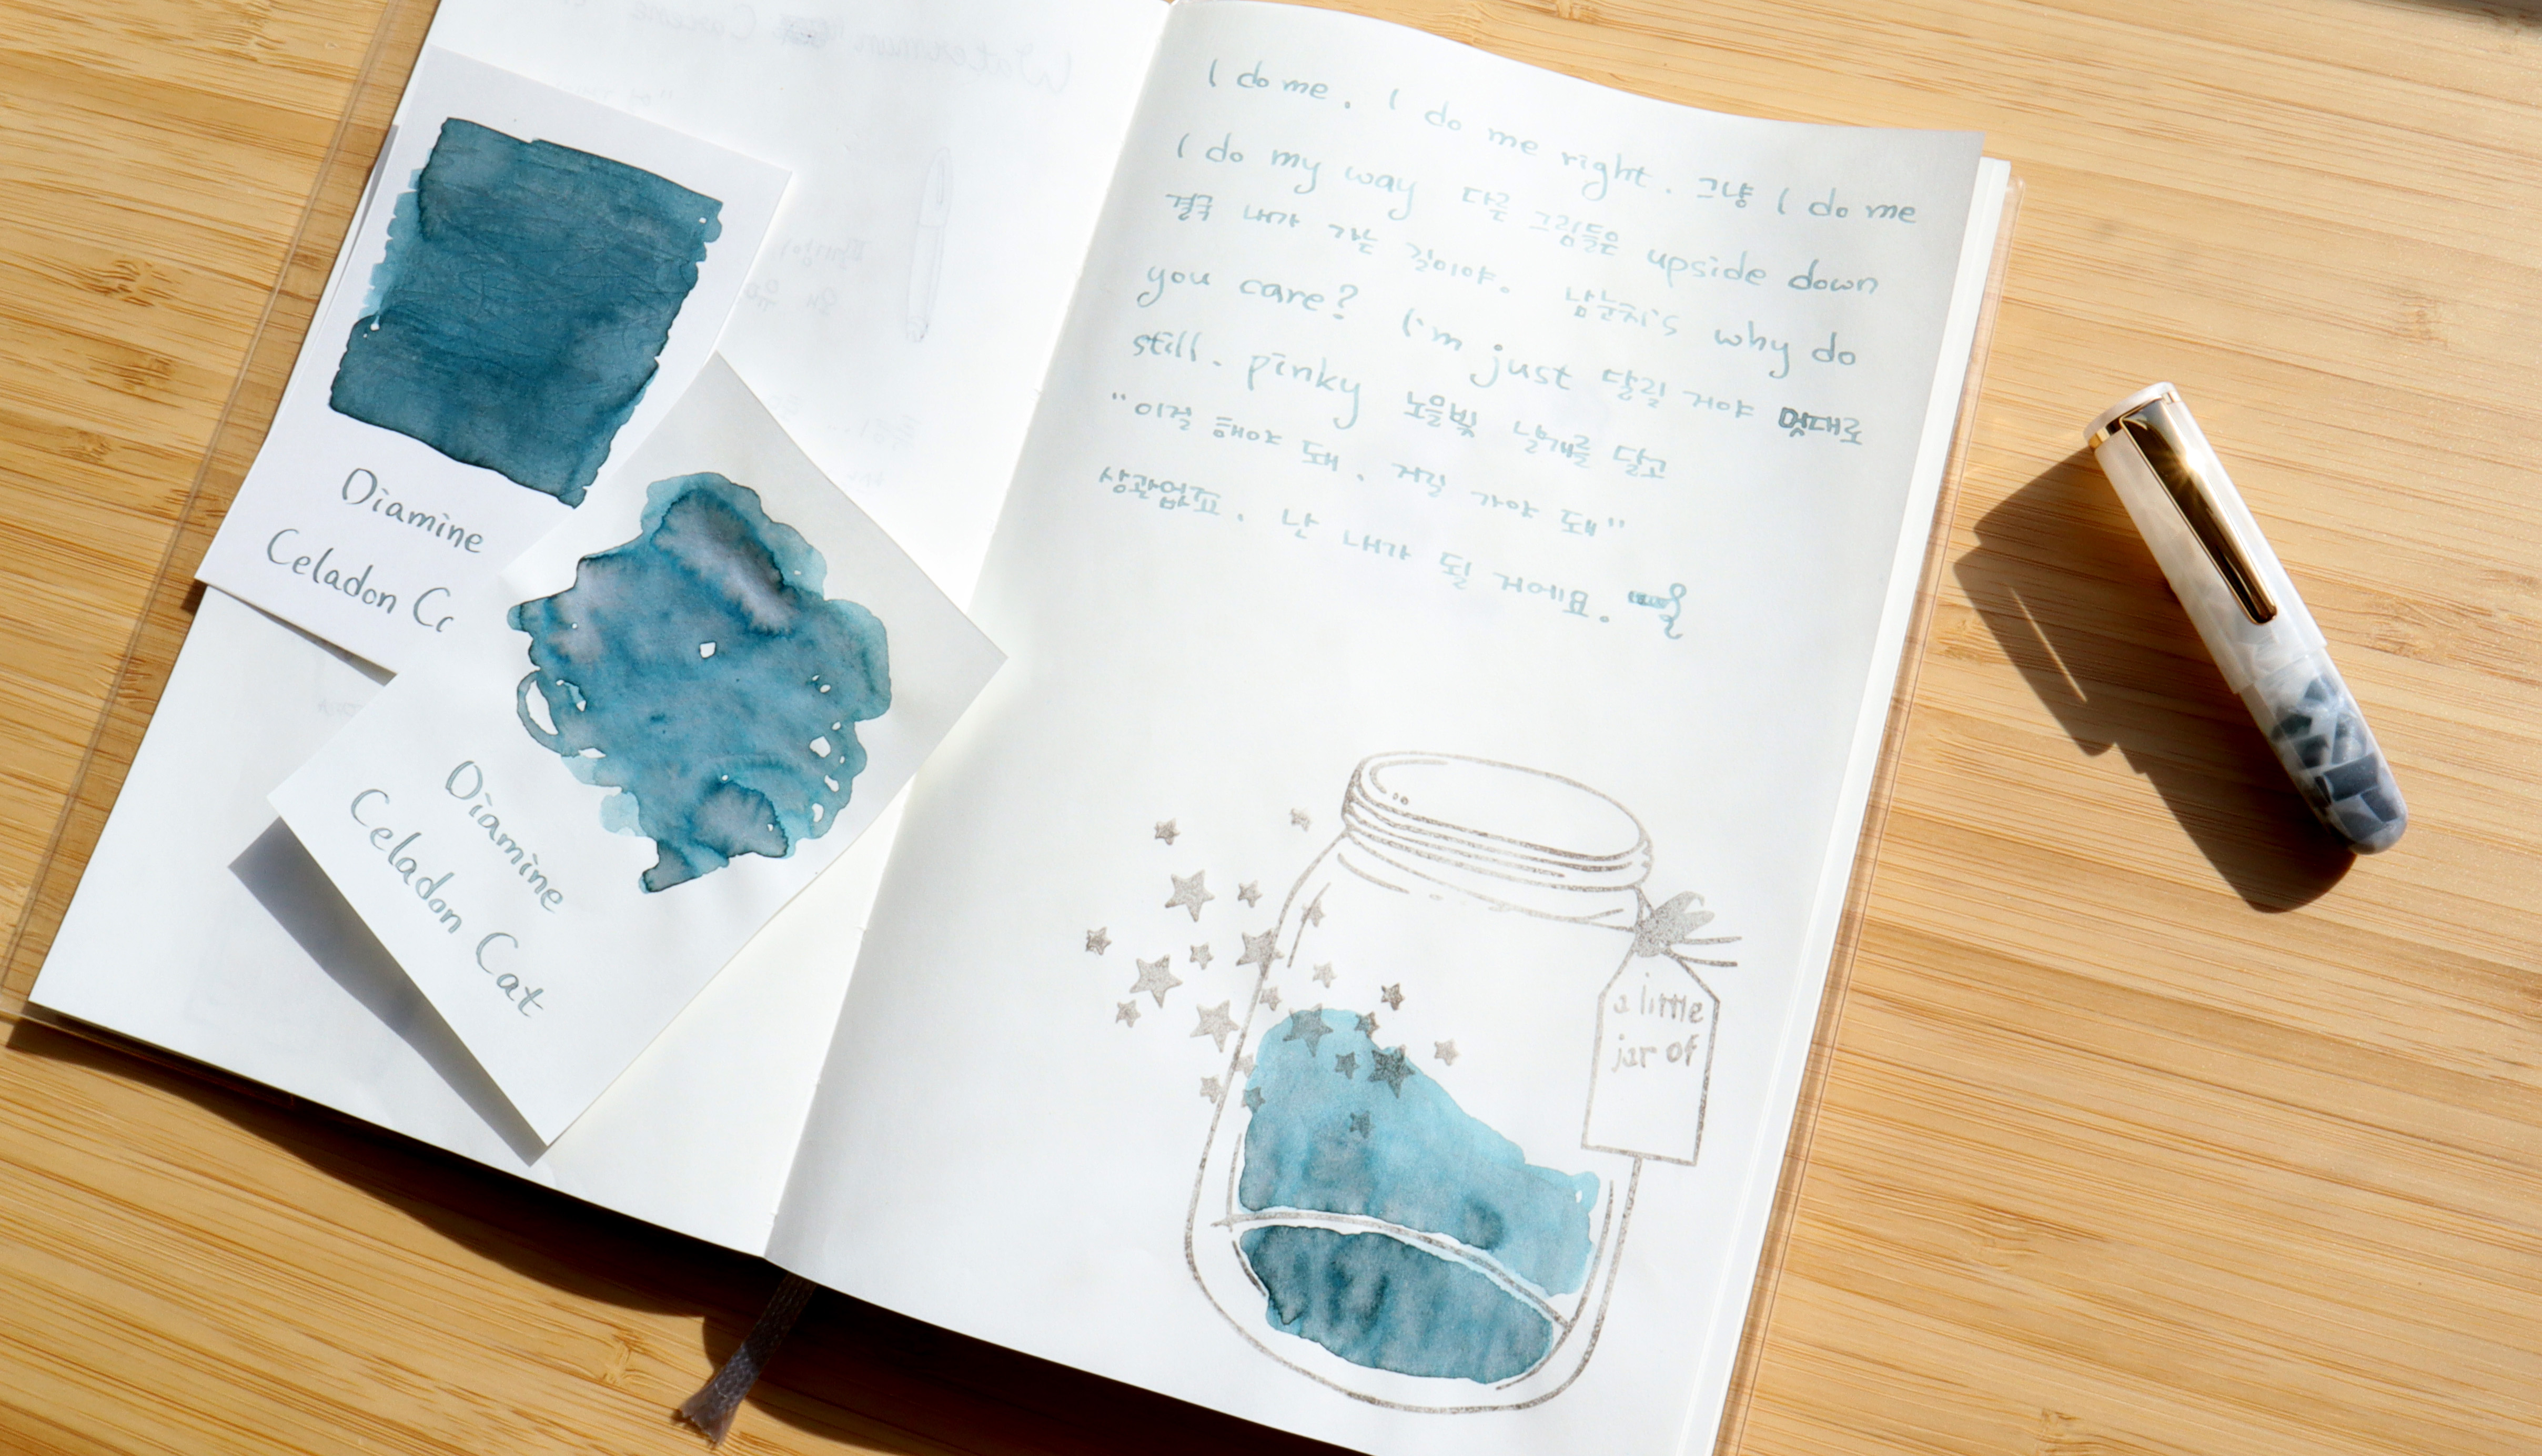 Waterman
Diamine
Celadon C
Diamine
Celadon Cat
I do me. I do me right. 그냥 I do me
I do my way 다른 그림들은 upside down
결국 내가 가는 길이야. 남눈치's why do
you care? I'm just 달릴 거야 멋대로
still. pinky 노을빛 날개를 달고
"이걸 해야 돼. 거길 가야 돼"
상관없죠. 난 내가 될 거예요.
a little
jar of